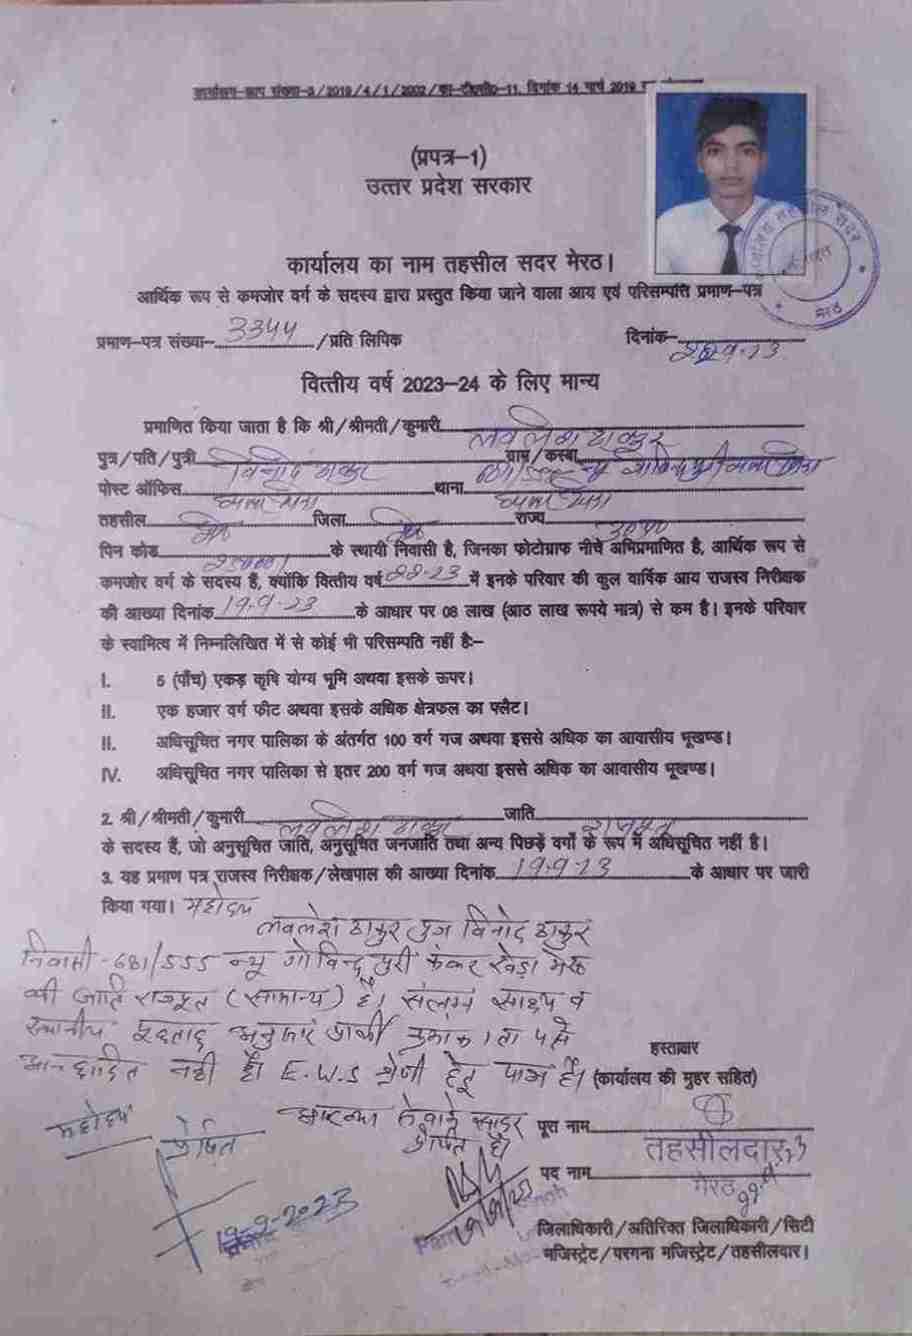 कार्यालय-ज्ञाप संख्या-3/2019/4/1/2002/का-2/टीसी-11, दिनांक 14 मार्च 2019
(प्रपत्र-1)
उत्तर प्रदेश सरकार
कार्यालय का नाम तहसील सदर मेरठ।
आर्थिक रूप से कमजोर वर्ग के सदस्य द्वारा प्रस्तुत किया जाने वाला आय एवं परिसम्पत्ति प्रमाण-पत्र
प्रमाण-पत्र संख्या- 3344 /प्रति लिपिक दिनांक-
वित्तीय वर्ष 2023-24 के लिए मान्य
प्रमाणित किया जाता है कि श्री/श्रीमती/कुमारी लवलेश ठाकुर
पुत्र/पति/पुत्री विनोद ठाकुर ग्राम/कस्बा न्यू गोविन्दपुरी
पोस्ट ऑफिस थाना
तहसील मेरठ जिला मेरठ राज्य उ0प्र0
पिन कोड 250001 के स्थायी निवासी है, जिनका फोटोग्राफ नीचे अभिप्रमाणित है, आर्थिक रूप से
कमजोर वर्ग के सदस्य हैं, क्योंकि वित्तीय वर्ष 22-23 में इनके परिवार की कुल वार्षिक आय राजस्व निरीक्षक
की आख्या दिनांक 19.9.23 के आधार पर 08 लाख (आठ लाख रूपये मात्र) से कम है। इनके परिवार
के स्वामित्व में निम्नलिखित में से कोई भी परिसम्पति नहीं है:-
I. 5 (पाँच) एकड़ कृषि योग्य भूमि अथवा इसके ऊपर।
II. एक हजार वर्ग फीट अथवा इसके अधिक क्षेत्रफल का फ्लैट।
II. अधिसूचित नगर पालिका के अंतर्गत 100 वर्ग गज अथवा इससे अधिक का आवासीय भूखण्ड।
IV. अधिसूचित नगर पालिका से इतर 200 वर्ग गज अथवा इससे अधिक का आवासीय भूखण्ड।
2. श्री/श्रीमती/कुमारी लवलेश ठाकुर जाति राजपूत
के सदस्य हैं, जो अनुसूचित जाति, अनुसूचित जनजाति तथा अन्य पिछड़े वर्गों के रूप में अधिसूचित नहीं है।
3. यह प्रमाण पत्र राजस्व निरीक्षक/लेखपाल की आख्या दिनांक 19.9.23 के आधार पर जारी
किया गया। महोदय
लवलेश ठाकुर पुत्र विनोद ठाकुर
निवासी-681/555 न्यू गोविन्द पुरी कंकर खेड़ा मेरठ
की जाति राजपूत (सामान्य) है। संलग्न साक्ष्य व
स्थानीय पूछताछ अनुसार प्रार्थी क्रमांक 1 ता 4 से
आच्छादित नहीं है। E.W.S श्रेणी हेतु पात्र है।
हस्ताक्षर
(कार्यालय की मुहर सहित)
आख्या सेवा में सादर
प्रेषित है
महोदय
प्रेषित
पूरा नाम
तहसीलदार
पद नाम
मेरठ
19-9-2023
जिलाधिकारी/अतिरिक्त जिलाधिकारी/सिटी
मजिस्ट्रेट/परगना मजिस्ट्रेट/तहसीलदार।